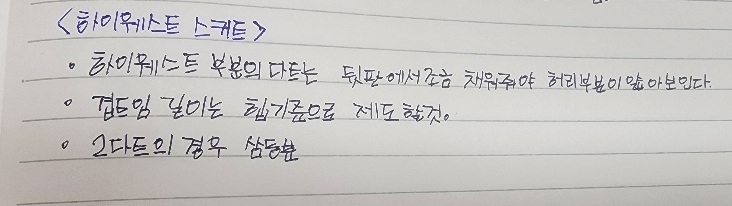 <하이웨스트 스커트>
• 하이웨스트 부분의 다트는 뒷판에서 조금 채워줘야 허리부분이 얇아보인다.
• 겹트임 길이는 힙기준으로 제도할것.
• 2다트의 경우 삼등분